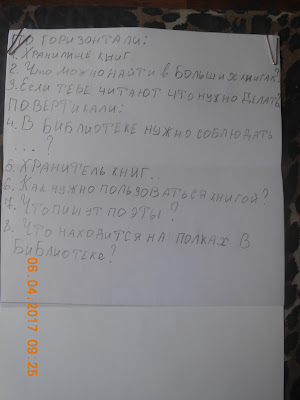 ПО ГОРИЗОНТАЛИ:
1. ХРАНИЛИЩЕ КНИГ.
2. ЧТО МОЖНО НАЙТИ В БОЛЬШИХ КНИГАХ?
3. ЕСЛИ ТЕБЕ ЧИТАЮТ ЧТО НУЖНО ДЕЛАТЬ?
ПО ВЕРТИКАЛИ:
4. В БИБЛИОТЕКЕ НУЖНО СОБЛЮДАТЬ
... ?
5. ХРАНИТЕЛЬ КНИГ..
6. КАК НУЖНО ПОЛЬЗОВАТЬСЯ КНИГОЙ?
7. ЧТО ПИШУТ ПОЭТЫ?
8. ЧТО НАХОДИТСЯ НА ПОЛКАХ В
БИБЛИОТЕКЕ?
06.04.2017 09:25